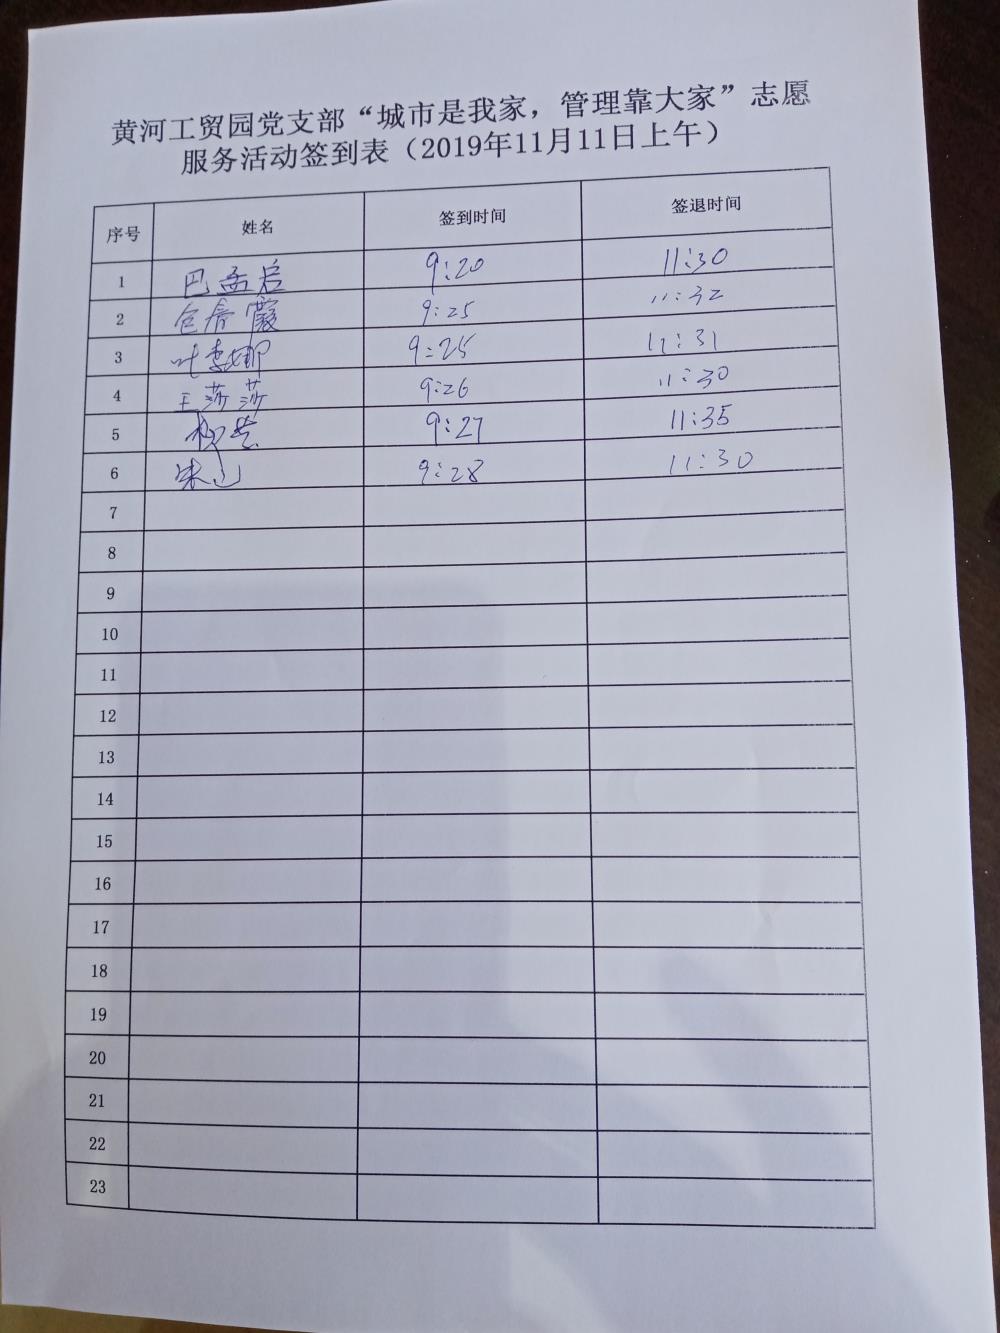 黄河工贸园党支部“城市是我家，管理靠大家”志愿
服务活动签到表（2019年11月11日上午）
序号 姓名 签到时间 签退时间
1 巴孟后 9:20 11:30
2 包春霞 9:25 11:32
3 叶李娜 9:25 11:31
4 王莎莎 9:26 11:30
5 9:27 11:35
6 9:28 11:30
7
8
9
10
11
12
13
14
15
16
17
18
19
20
21
22
23